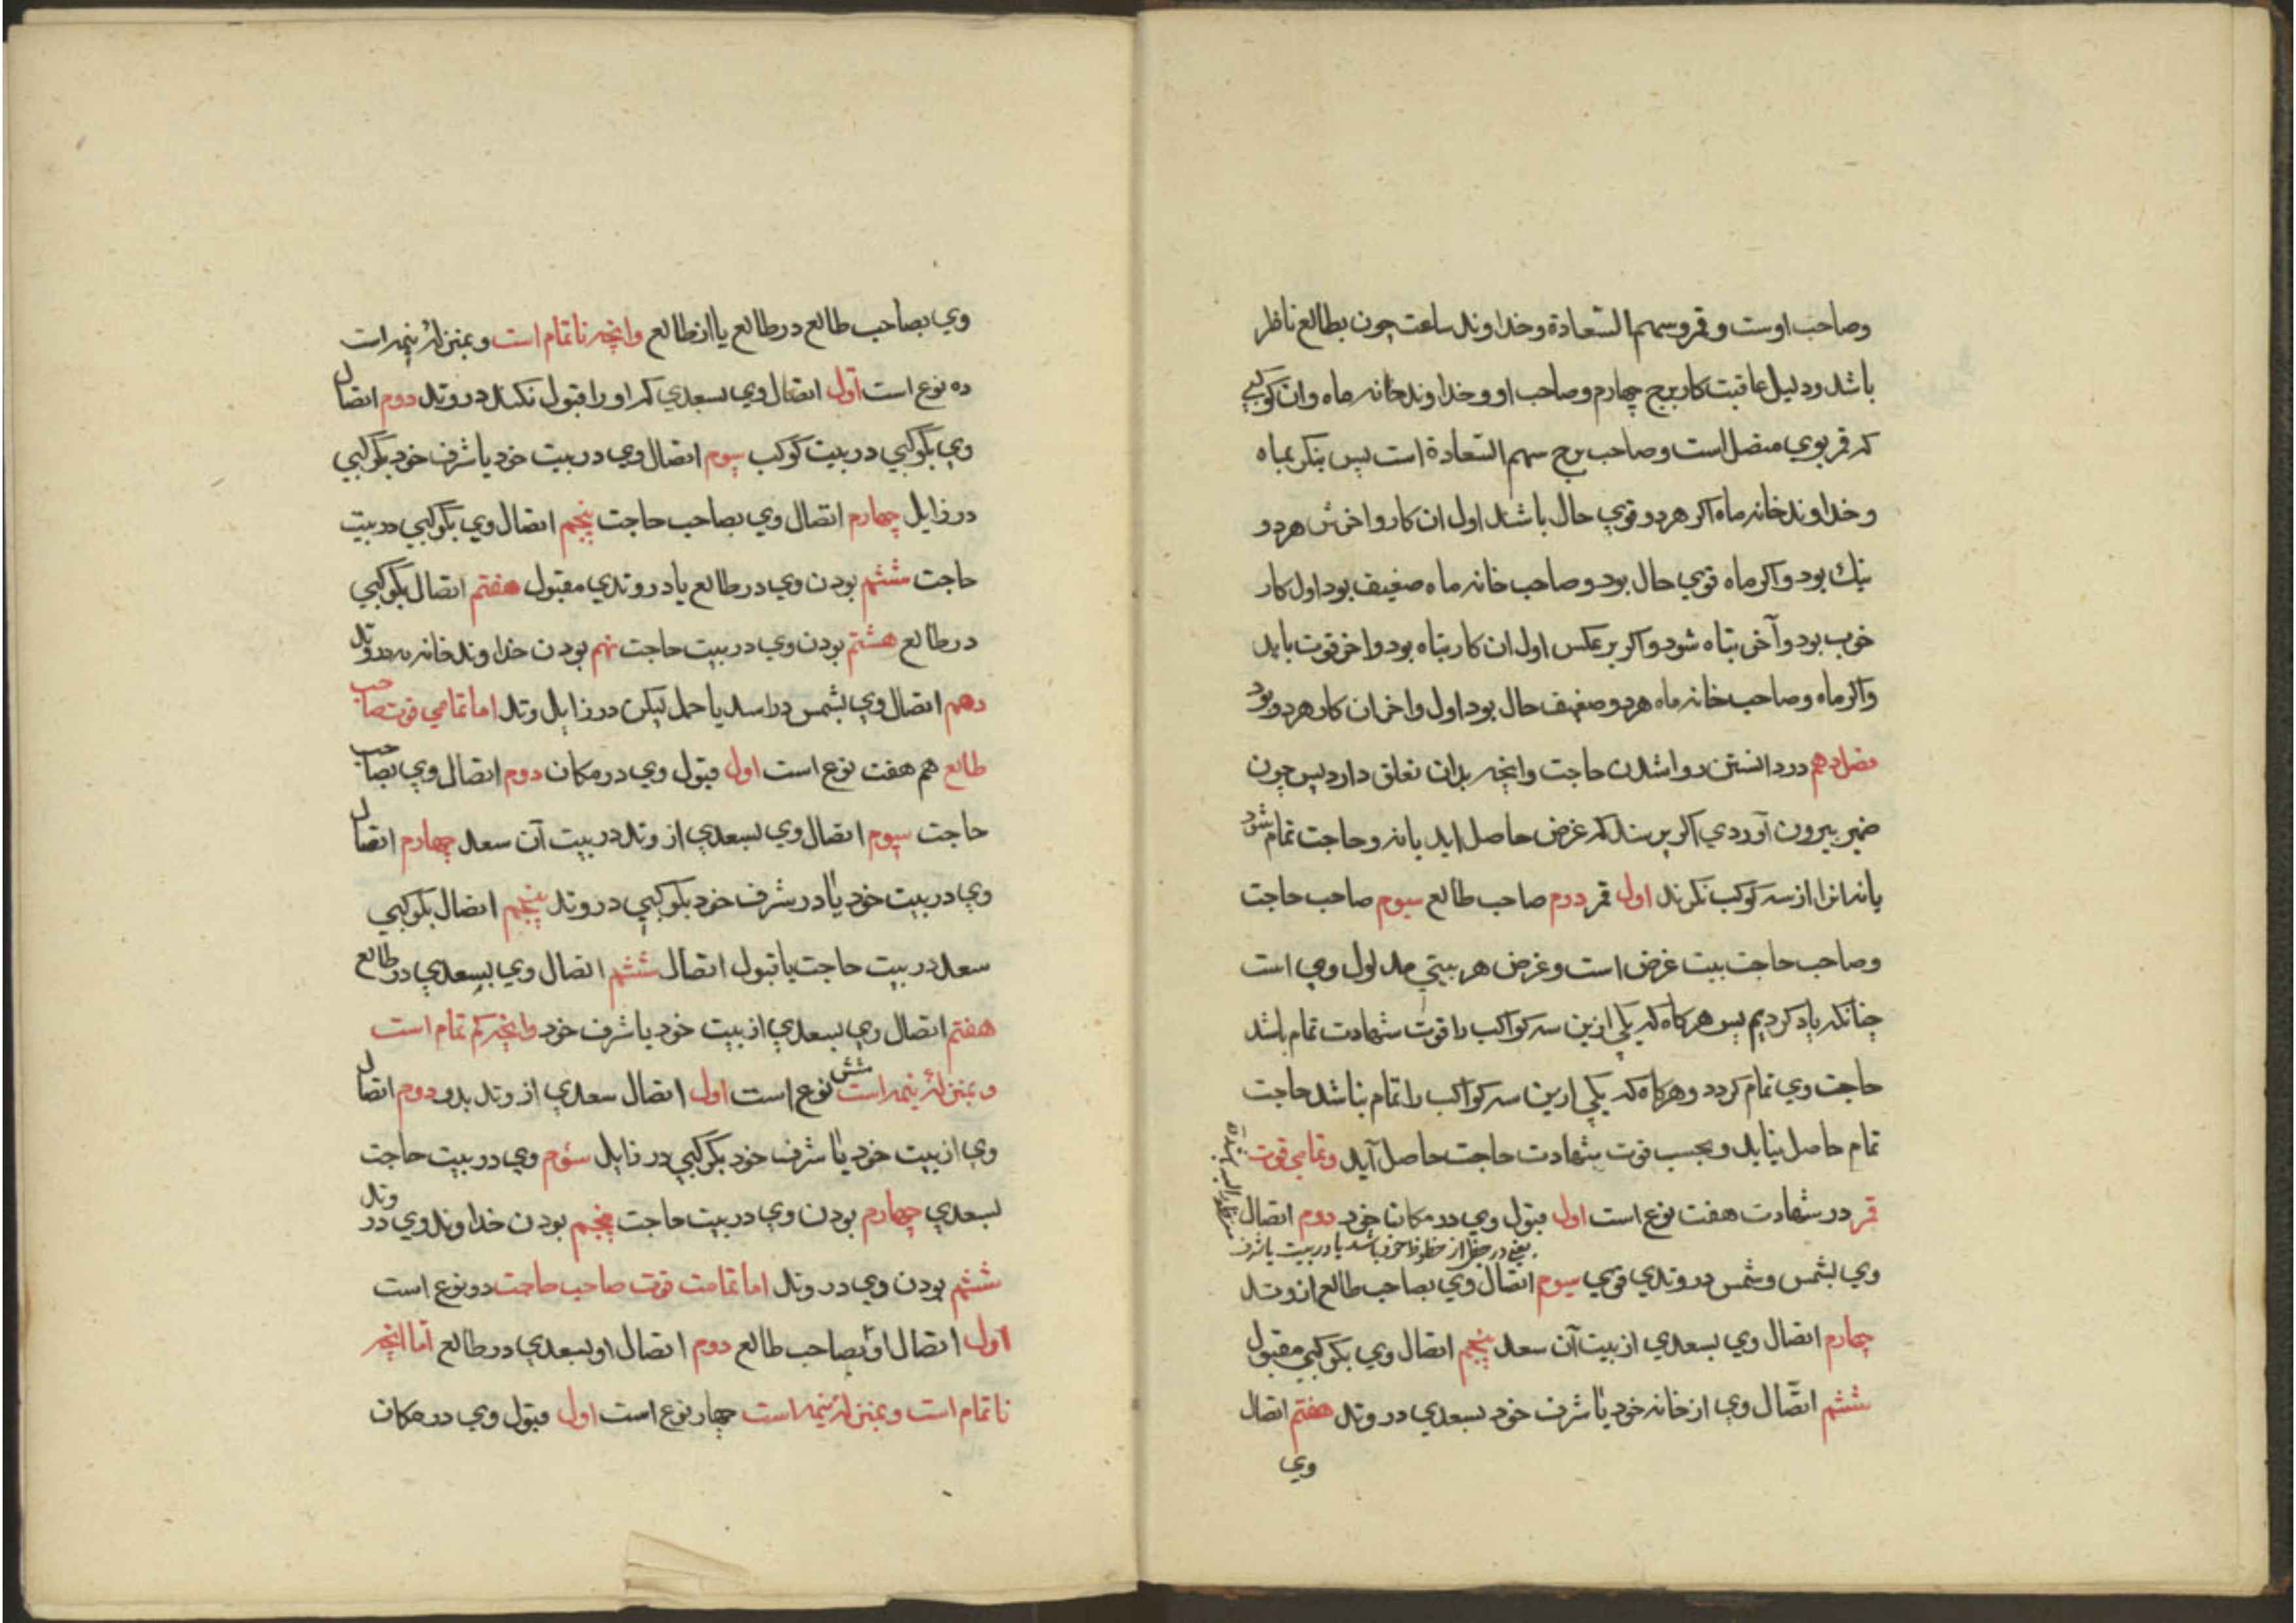 وصاحب اوست و قمر و سهم السّعادة و خداوند ساعت چون بطالع ناظر
باشد و دلیل عاقبت کار برج چهارم و صاحب او و خداوند خانه ماه و ان کوکبی
که قمر بوی متصل است و صاحب برج سهم السّعادة است پس بنکر بماه
و خداوند خانه ماه اکر هر دو قوی حال باشند اول ان کار و اخرش هر دو
نیك بود و اکر ماه قوی حال بود و صاحب خانه ماه ضعیف بود اول کار
خوب بود و آخر تباه شود و اکر بر عکس اول ان کار تباه بود و اخر قوت یابد
و اکر ماه و صاحب خانه ماه هر دو ضعیف حال بود اول و اخر ان کار هر دو بود
فصل دهم در دانستن روا شدن حاجت و انچه بدان تعلق دارد پس چون
ضمیر بیرون آوردی اکر پرسند که غرض حاصل اید یا نه و حاجت تمام شود
یا نه انرا از سه کوکب نکرند اول قمر دوم صاحب طالع سیوم صاحب حاجت
و صاحب حاجت بیت غرض است و غرض هر بیتی مدلول وی است
چنانکه یاد کردیم پس هر کاه که یکی ازین سه کواکب را قوت شهادت تمام باشد
حاجت وی تمام کردد و هر کاه که یکی ازین سه کواکب را تمام نباشد حاجت
تمام حاصل نیاید و بحسب قوت شهادت حاجت حاصل آید و تمامی قوت
قمر در شهادت هفت نوع است اول قبول وی در مکان خود دوم اتصال
یعنی در حظی از حظوظ خود باشد یا در بیت یا شرف
وی بشمس و شمس در وتدی قوی سیوم اتصال وی بصاحب طالع از وتد
چهارم اتصال وی بسعدی از بیت آن سعد پنجم اتصال وی بکوکبی مقبول
ششم اتّصال وی از خانه خود یا شرف خود بسعدی در وتد هفتم اتصال
وی
وی بصاحب طالع در طالع یا از طالع و انچه ناتمام است و بمنزله نیمه است
ده نوع است اوّل اتصال وی بسعدی که او را قبول نکند در وتد دوم اتصال
وی بکوکبی در بیت کوکب سیوم اتصال وی در بیت خود یا شرف خود بکوکبی
در زایل چهارم اتصال وی بصاحب حاجت پنجم اتصال وی بکوکبی در بیت
حاجت ششم بودن وی در طالع یا در وتدی مقبول هفتم اتصال بکوکبی
در طالع هشتم بودن وی در بیت حاجت نهم بودن خداوند خانه مه در وتد
دهم اتصال وی بشمس در اسد یا حمل لیکن در زایل وتد اما تمامی قوت صاحب
طالع هم هفت نوع است اول قبول وی در مکان دوم اتصال وی بصاحب
حاجت سیوم اتصال وی بسعدی از وتد در بیت آن سعد چهارم اتصال
وی در بیت خود یا در شرف خود بکوکبی در وتد پنجم اتصال بکوکبی
سعد در بیت حاجت با قبول اتصال ششم اتصال وی بسعدی در طالع
هفتم اتصال وی بسعدی از بیت خود یا شرف خود و انچه کم تمام است
و بمنزله نیمه است شش نوع است اول اتصال سعدی از وتد بدو دوم اتصال
وی از بیت خود یا شرف خود بکوکبی در زایل سوّم وی در بیت حاجت
بسعدی چهارم بودن وی در بیت حاجت پنجم بودن خداوند وی در وتد
ششم بودن وی در وتد اما تمامت قوت صاحب حاجت دو نوع است
اول اتصال او بصاحب طالع دوم اتصال او بسعدی در طالع اما انچه
ناتمام است و بمنزله نیمه است چهار نوع است اول قبول وی در مکان